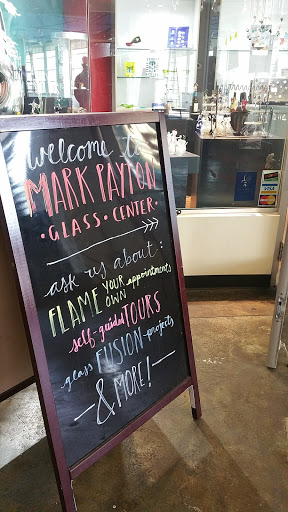 welcome to
MARK PAYTON
• GLASS • CENTER •
ask us about:
FLAME YOUR OWN appointments
self-guided TOURS
glass FUSION projects
— & MORE! —
VISA